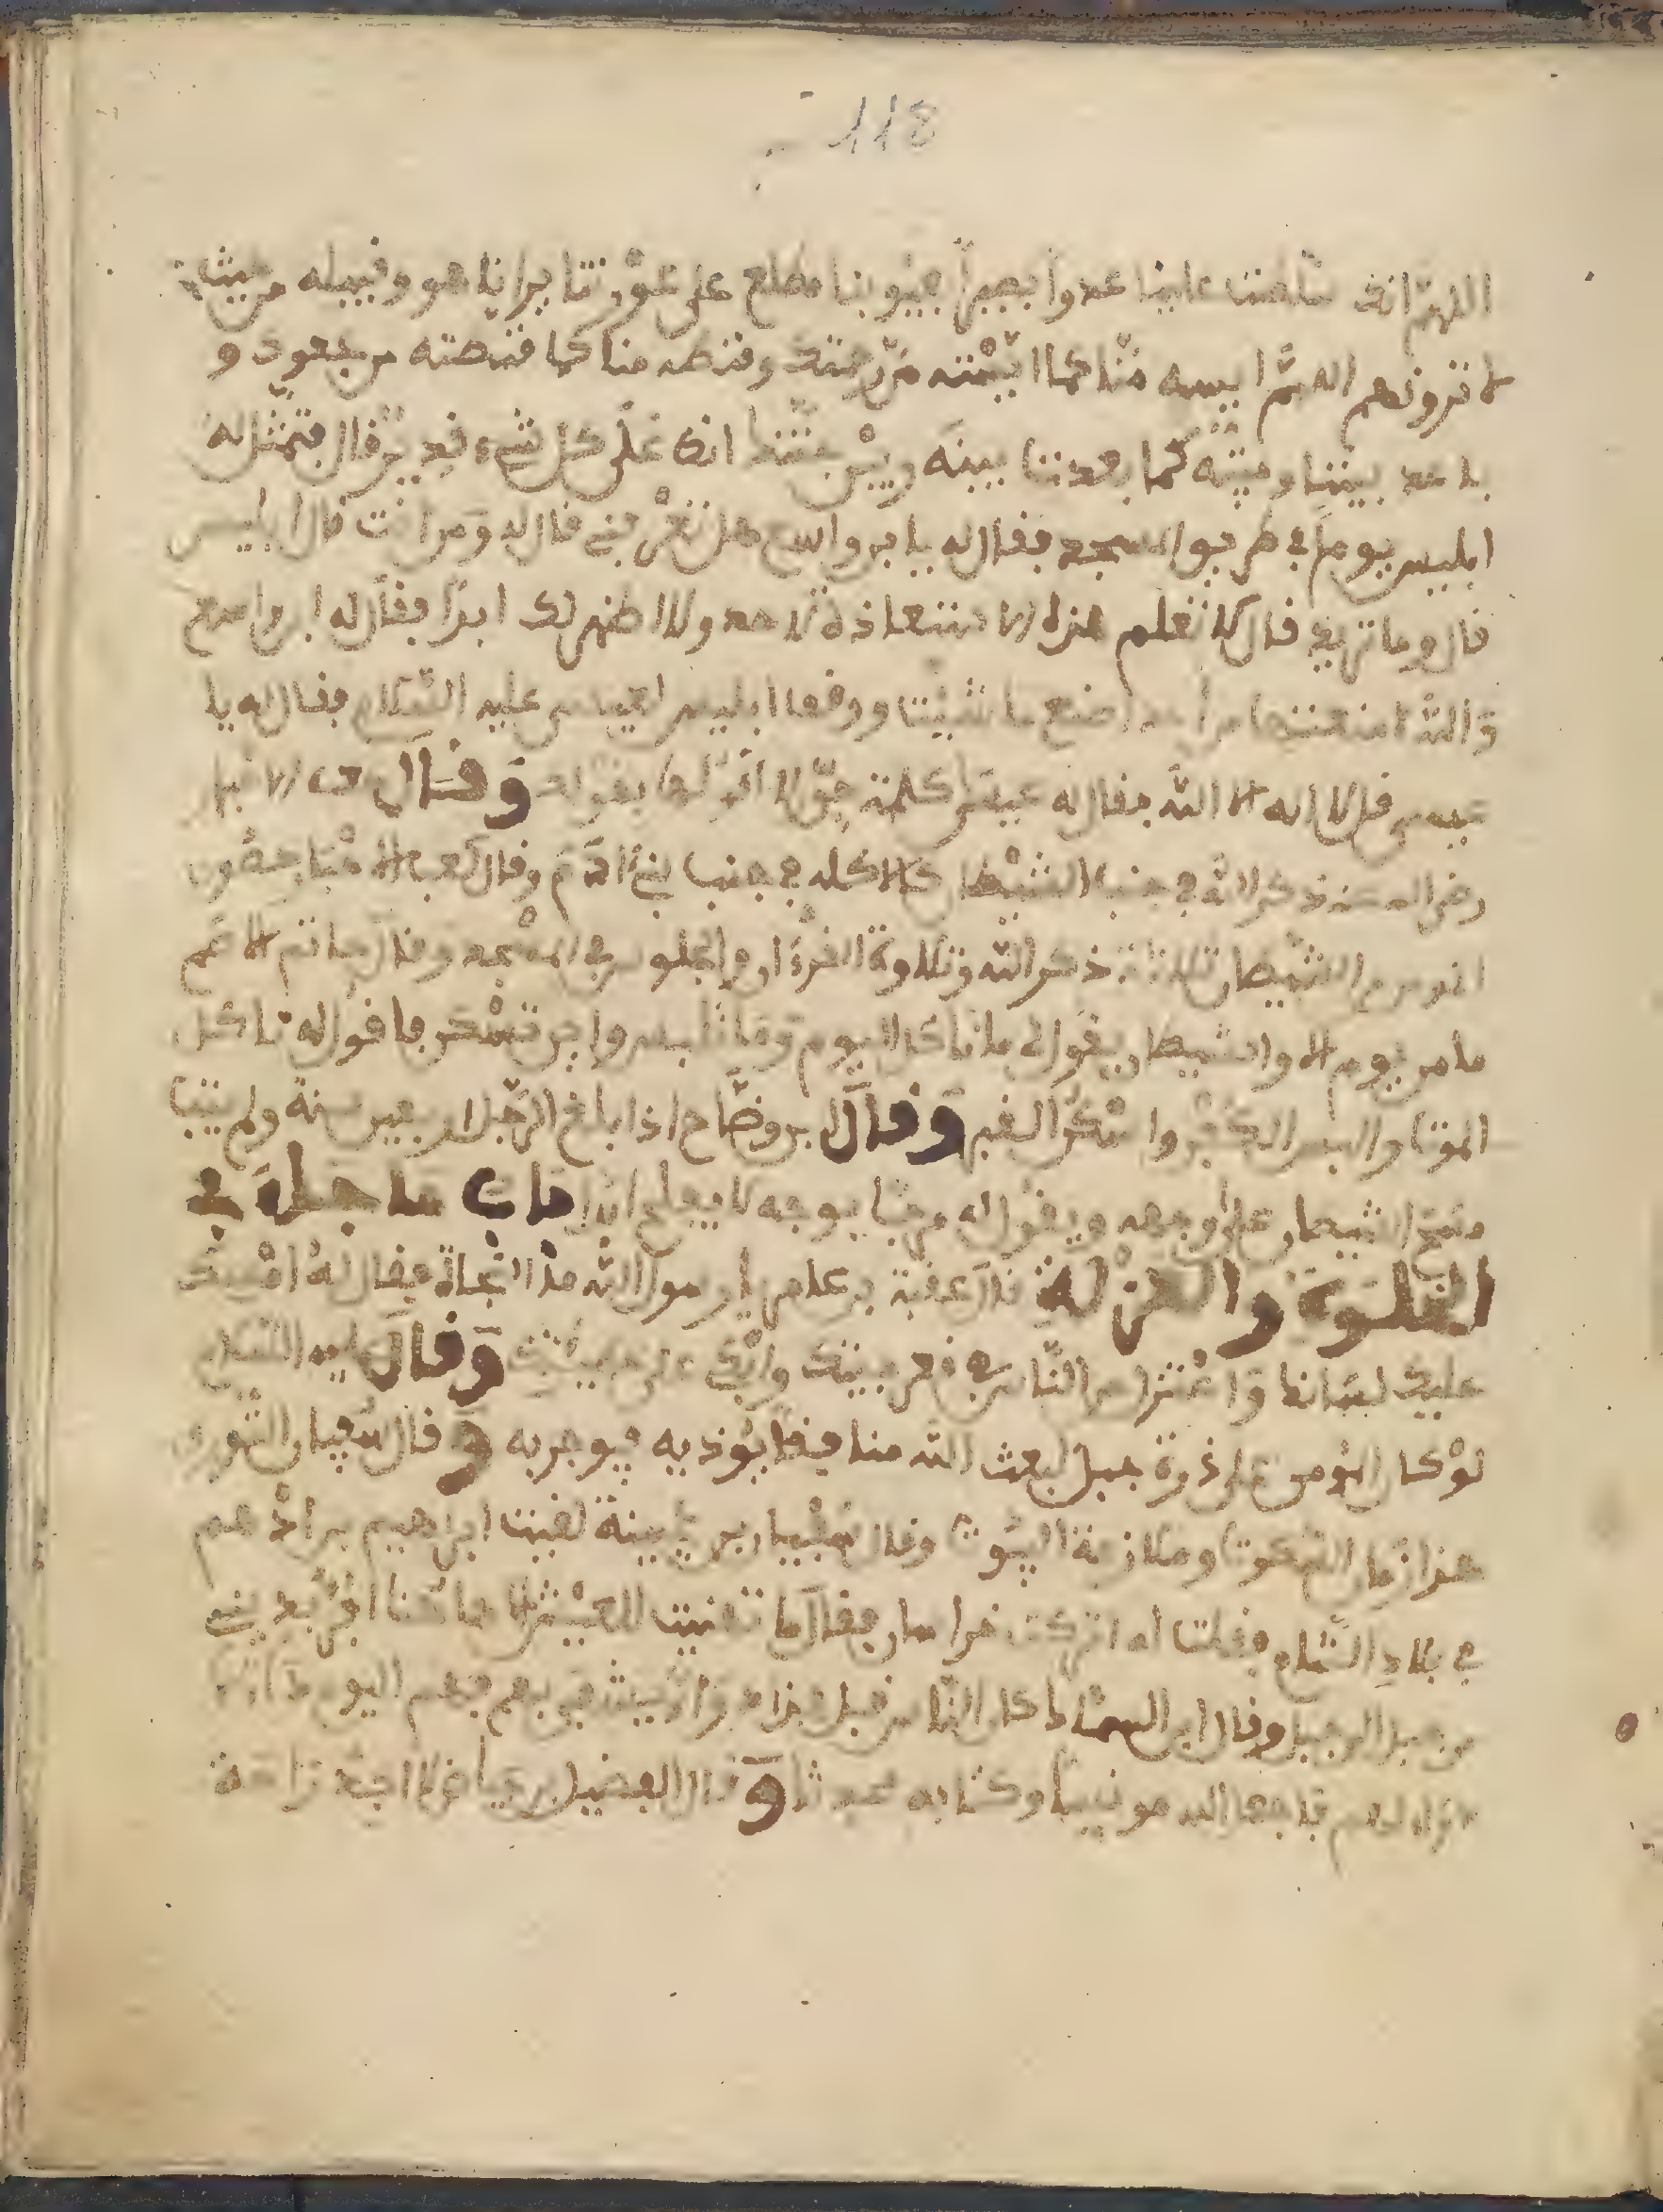 118
اللهم انك سلطت علينا عدوا بصيرا بعيوبنا مطلع على عورتنا يرانا هو وقبيله من حيث
لا ترونهم اللهم ايسه منا كما ايسته من رحمتك وقنطه منا كما قنطته من عفوك و
باعد بيننا وبينه كما بعدت بينه وبين جنتك انك على كل شيء قدير قال فتمثل له
ابليس يوما في طريق المسجد فقال له يا بن واسع هل تعرفني قال له ومن انت قال ابليس
قال وما تريد قال لا تعلم هذه الاستعاذة لاحد ولا اظهر لك ابدا فقال له ابن واسع
والله لا منعتها من احد اصنع ما شيت ووقف ابليس لعيسى عليه السلام فقال له يا
عيسى قل لا اله الا الله فقال له عيسى كلمة حق لا اقولها بقولك وقال
رضي الله عنه ذكر الله في جنب الشيطان كالاكله في جنب بني ادم وقال كعب الاحبار حصون
المومن من الشيطان ثلاثة ذكر الله وتلاوة القرءان والجلوس في المسجد وقال حاتم الاصم
ما من يوم الا والشيطان يقول لي ما تاكل اليوم وما تلبس واين تسكن فاقول له ناكل
الموت والبس الكفن واسكن القبر وقال ابن وضاح اذا بلغ الرجل اربعين سنة ولم يتب
مسح الشيطان على وجهه ويقول له مرحبا بوجه لا يفلح ابدا باب ما جاء في
الخلوة والعزلة قال عقبة بن عامر يا رسول الله ما النجاة فقال له امسك
عليك لسانك واعتزل من الناس في قعر بيتك وابك على خطيئتك وقال عليه السلام
لو كان المؤمن على ذروة جبل لبعث الله منافقا يؤذيه فيوجر به وقال سفيان الثوري
هذا زمان السكوت وملازمة البيوت وقال سفيان بن عيينة لقيت ابراهيم بن ادهم
في بلاد الشام فقلت له اتركت خراسان فقال ما تهنيت للعيش الا هاهنا افر بديني
من جبل الى جبل وقال ابن السماك كان الناس قبل هذا
فاجعل الله مونسا وكتابه محدثا وقال الفضيل بن عياض لا اجد راحة